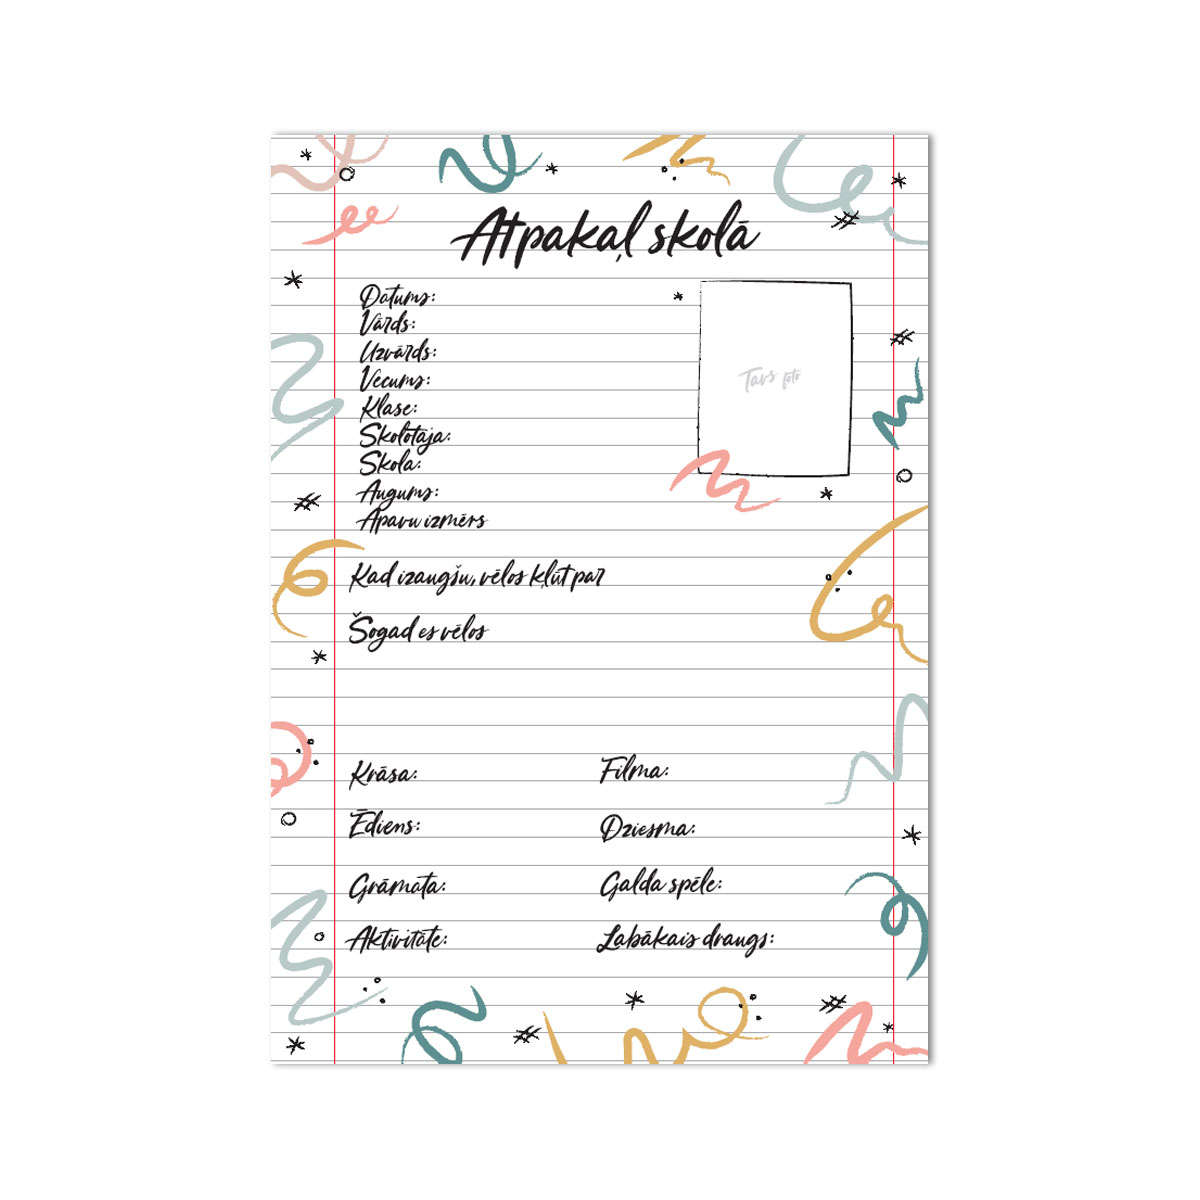 Atpakaļ skolā
Datums:
Vārds:
Uzvārds:
Vecums:
Klase:
Skolotāja:
Skola:
Augums:
Apavu izmērs
Tavs foto
Kad izaugšu, vēlos kļūt par
Šogad es vēlos
Krāsa: Filma:
Ēdiens: Dziesma:
Grāmata: Galda spēle:
Aktivitāte: Labākais draugs: